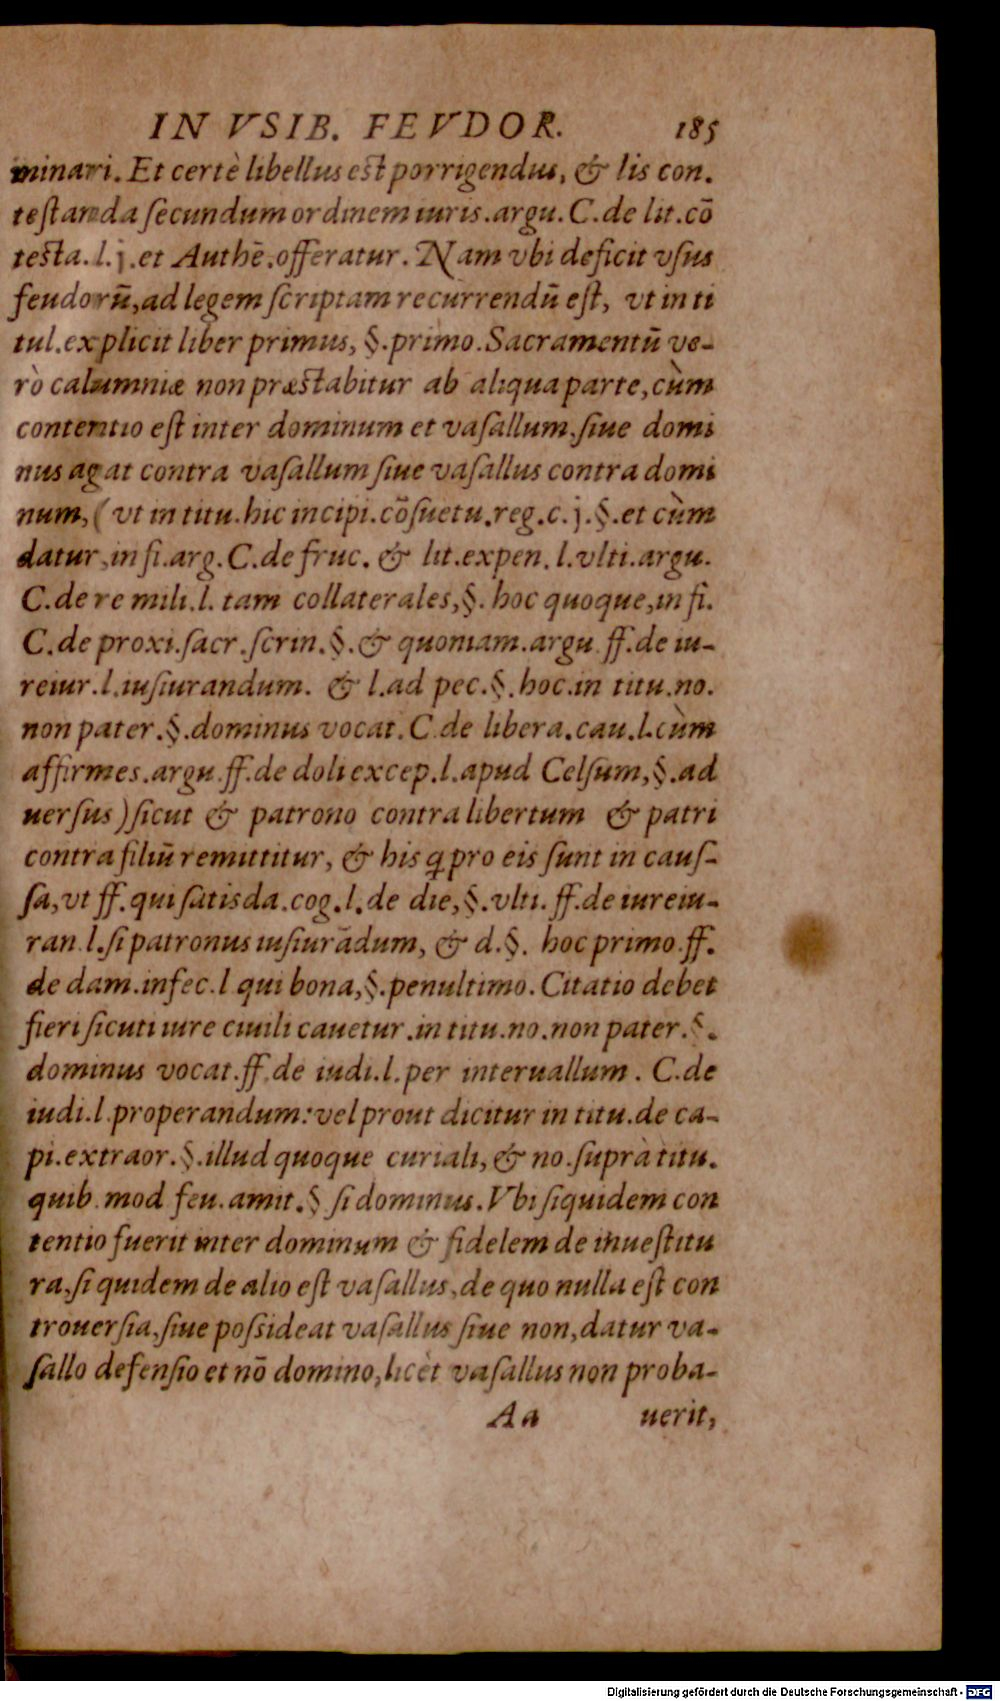 IN VSIB. FEVDOR. 185
minari. Et certè libellus est porrigendus, & lis con.
testanda secundum ordinem iuris. argu. C. de lit. cõ
testa. l. j. et Authẽ. offeratur. Nam vbi deficit vsus
feudorũ, ad legem scriptam recurrendũ est, vt in ti
tul. explicit liber primus, §. primo. Sacramentũ ve-
rò calumniæ non præstabitur ab aliqua parte, cùm
contentio est inter dominum et vasallum, siue domi
nus agat contra vasallum siue vasallus contra domi
num, ( vt in titu. hic incipi. cõsuetu. reg. c. j. §. et cùm
datur, in fi. arg. C. de fruc. & lit. expen. l. vlti. argu.
C. de re mili. l. tam collaterales, §. hoc quoque, in fi.
C. de proxi. sacr. scrin. §. & quoniam. argu. ff. de iu-
reiur. l. iusiurandum. & l. ad pec. §. hoc. in titu. no.
non pater. §. dominus vocat. C. de libera. cau. l. cùm
affirmes. argu. ff. de doli excep. l. apud Celsum, §. ad
uersus) sicut & patrono contra libertum & patri
contra filiũ remittitur, & his q̃ pro eis sunt in caus-
sa, vt ff. qui satisda. cog. l. de die, §. vlti. ff. de iureiu-
ran. l. si patronus iusiurãdum, & d. §. hoc primo. ff.
de dam. infec. l. qui bona, §. penultimo. Citatio debet
fieri sicuti iure ciuili cauetur. in titu. no. non pater. §.
dominus vocat. ff. de iudi. l. per interuallum. C. de
iudi. l. properandum: vel prout dicitur in titu. de ca-
pi. extraor. §. illud quoque curiali, & no. suprà titu.
quib. mod feu. amit. § si dominus. Vbi siquidem con
tentio fuerit inter dominum & fidelem de inuestitu
ra, si quidem de alio est vasallus, de quo nulla est con
trouersia, siue possideat vasallus siue non, datur va-
sallo defensio et nõ domino, licèt vasallus non proba-
Aa uerit,
Digitalisierung gefördert durch die Deutsche Forschungsgemeinschaft - DFG